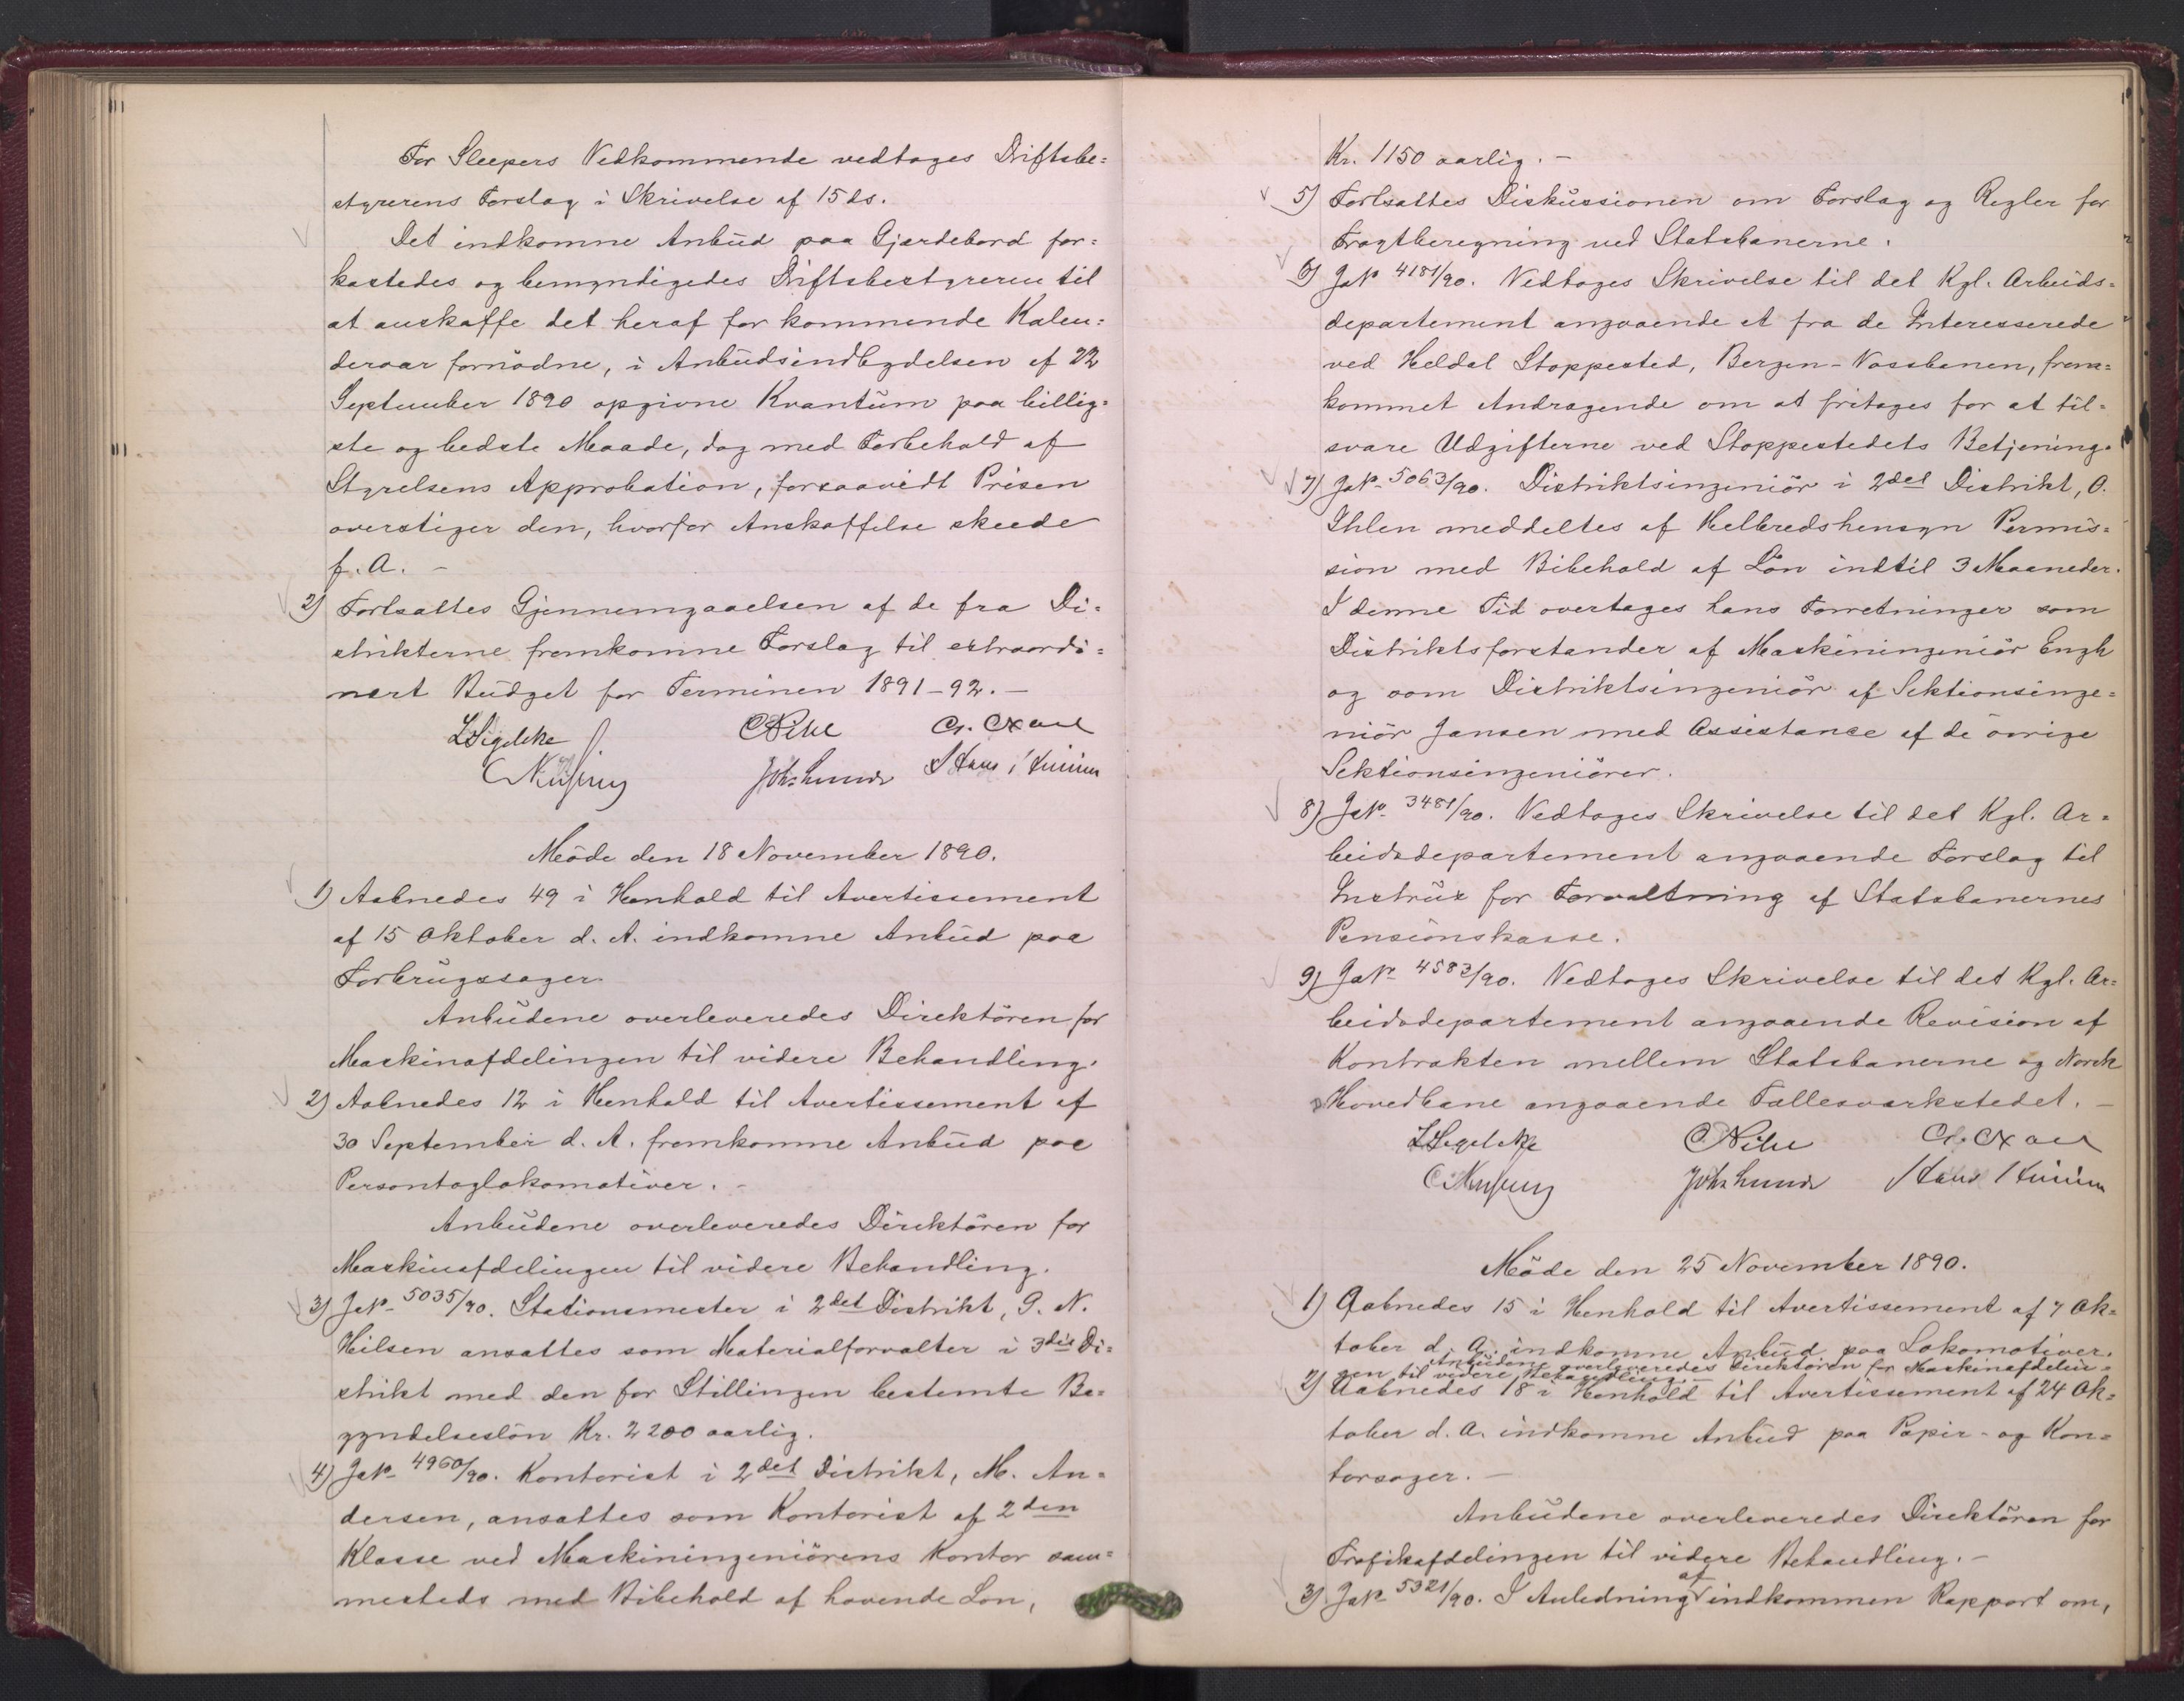 For Sleepers Vedkommende vedtoges Driftsbe=
styrerens Forslag i Skrivelse af 15 ds.
Det indkomne Anbud paa Gjærdebord for=
kastedes og bemyndigedes Driftsbestyreren til
at anskaffe det heraf for kommende Kalen=
deraar fornødne, i Anbudsindbydelsen af 22
September 1890 opgivne Kvantum paa billig=
ste og bedste Maade, dog med Forbehold af
Styrelsens Approbation, forsaavidt Prisen
overstiger den, hvorfor Anskaffelse skede
f. A. -
2) Fortsattes Gjennemgaaelsen af de fra Di=
strikterne fremkomne Forslag til extraordi=
nært Budget for Terminen 1891-92. -
C Pihl
Joh. Lunde
Møde den 18 November 1890.
1) Aabnedes 49 i Henhold til Avertissement
af 15 Oktober d. A. indkomne Anbud paa
Forbrugssager.
Anbudene overleveredes Direktøren for
Maskinafdelingen til videre Behandling.
2) Aabnedes 12 i Henhold til Avertissement af
30 September d. A. fremkomne Anbud paa
Persontoglokomotiver. -
Anbudene overleveredes Direktøren for
Maskinafdelingen til videre Behandling.
3) JaNo 5035/90. Stationsmester i 2det Distrikt, P. N.
Hilsen ansattes som Materialforvalter i 3die Di=
strikt med den for Stillingen bestemte Be=
gyndelsesløn Kr. 2200 aarlig.
4) JaNo 4960/90. Kontorist i 2det Distrikt, M. An=
dersen, ansattes som Kontorist af 2den
Klasse ved Maskiningeniørens Kontor sam=
mesteds med Bibehold af havende Løn,
Kr. 1150 aarlig. -
5) Fortsattes Diskussionen om Forslag og Regler for
Fragtberegning ved Statsbanerne.
6) JaNo 4181/90. Vedtoges Skrivelse til det Kgl. Arbeids=
departement angaaende et fra de Interesserede
ved Heldal Stoppested, Bergen-Vossbanen, frem=
kommet Andragende om at fritages for at til=
svare Udgifterne ved Stoppestedets Betjening.
7) JaNo 5063/90. Distriktsingeniør i 2det Distrikt, O.
Ihlen meddeltes af Helbredshensyn Permis=
sion med Bibehold af Løn indtil 3 Maaneder.
I denne Tid overtages hans Forretninger som
Distriktsforstander af Maskiningeniør Engh
og som Distriktsingeniør af Sektionsinge=
niør Jansen med Assistance af de øvrige
Sektionsingeniører.
8) JaNo 3481/90. Vedtoges Skrivelse til det Kgl. Ar=
beidsdepartement angaaende Forslag til
Instrux for Forvaltning af Statsbanernes
Pensionskasse.
9) JaNo 4583/90. Vedtoges Skrivelse til det Kgl. Ar=
beidsdepartement angaaende Revision af
Kontrakten mellem Statsbanerne og Norsk
Hovedbane angaaende Fællesværkstedet. -
C Pihl
Joh. Lunde
Møde den 25 November 1890.
1) Aabnedes 15 i Henhold til Avertissement af 7 Ok=
tober d. A. indkomne Anbud paa Lokomotiver.
Anbudene overleveredes Direktøren for Maskinafdelin=
gen til videre Behandling. -
2) Aabnedes 18 i Henhold til Avertissement af 24 Ok=
tober d. A. indkomne Anbud paa Papir- og Kon=
torsager. -
Anbudene overleveredes Direktøren for
Trafikafdelingen til videre Behandling. -
3) JaNo 5321/90. I Anledning af indkommen Rapport om,